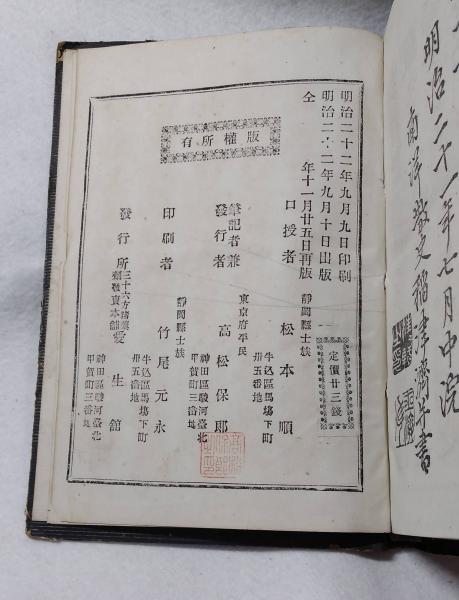 明治二十一年七月中浣
南洋散史稲津濟書
明治二十二年九月九日印刷
明治二十二年九月十日出版
全年十一月廿五日再版
定價廿三錢
口授者
靜岡縣士族
松本順
版權所有
筆記者兼
發行者
東京府平民
高松保郎
神田區駿河臺北
甲賀町三番地
印刷者
靜岡縣士族
竹尾元永
牛込區馬場下町
卅五番地
發行所
三十六方諸藥
愛生館
神田區駿河臺北
甲賀町三番地